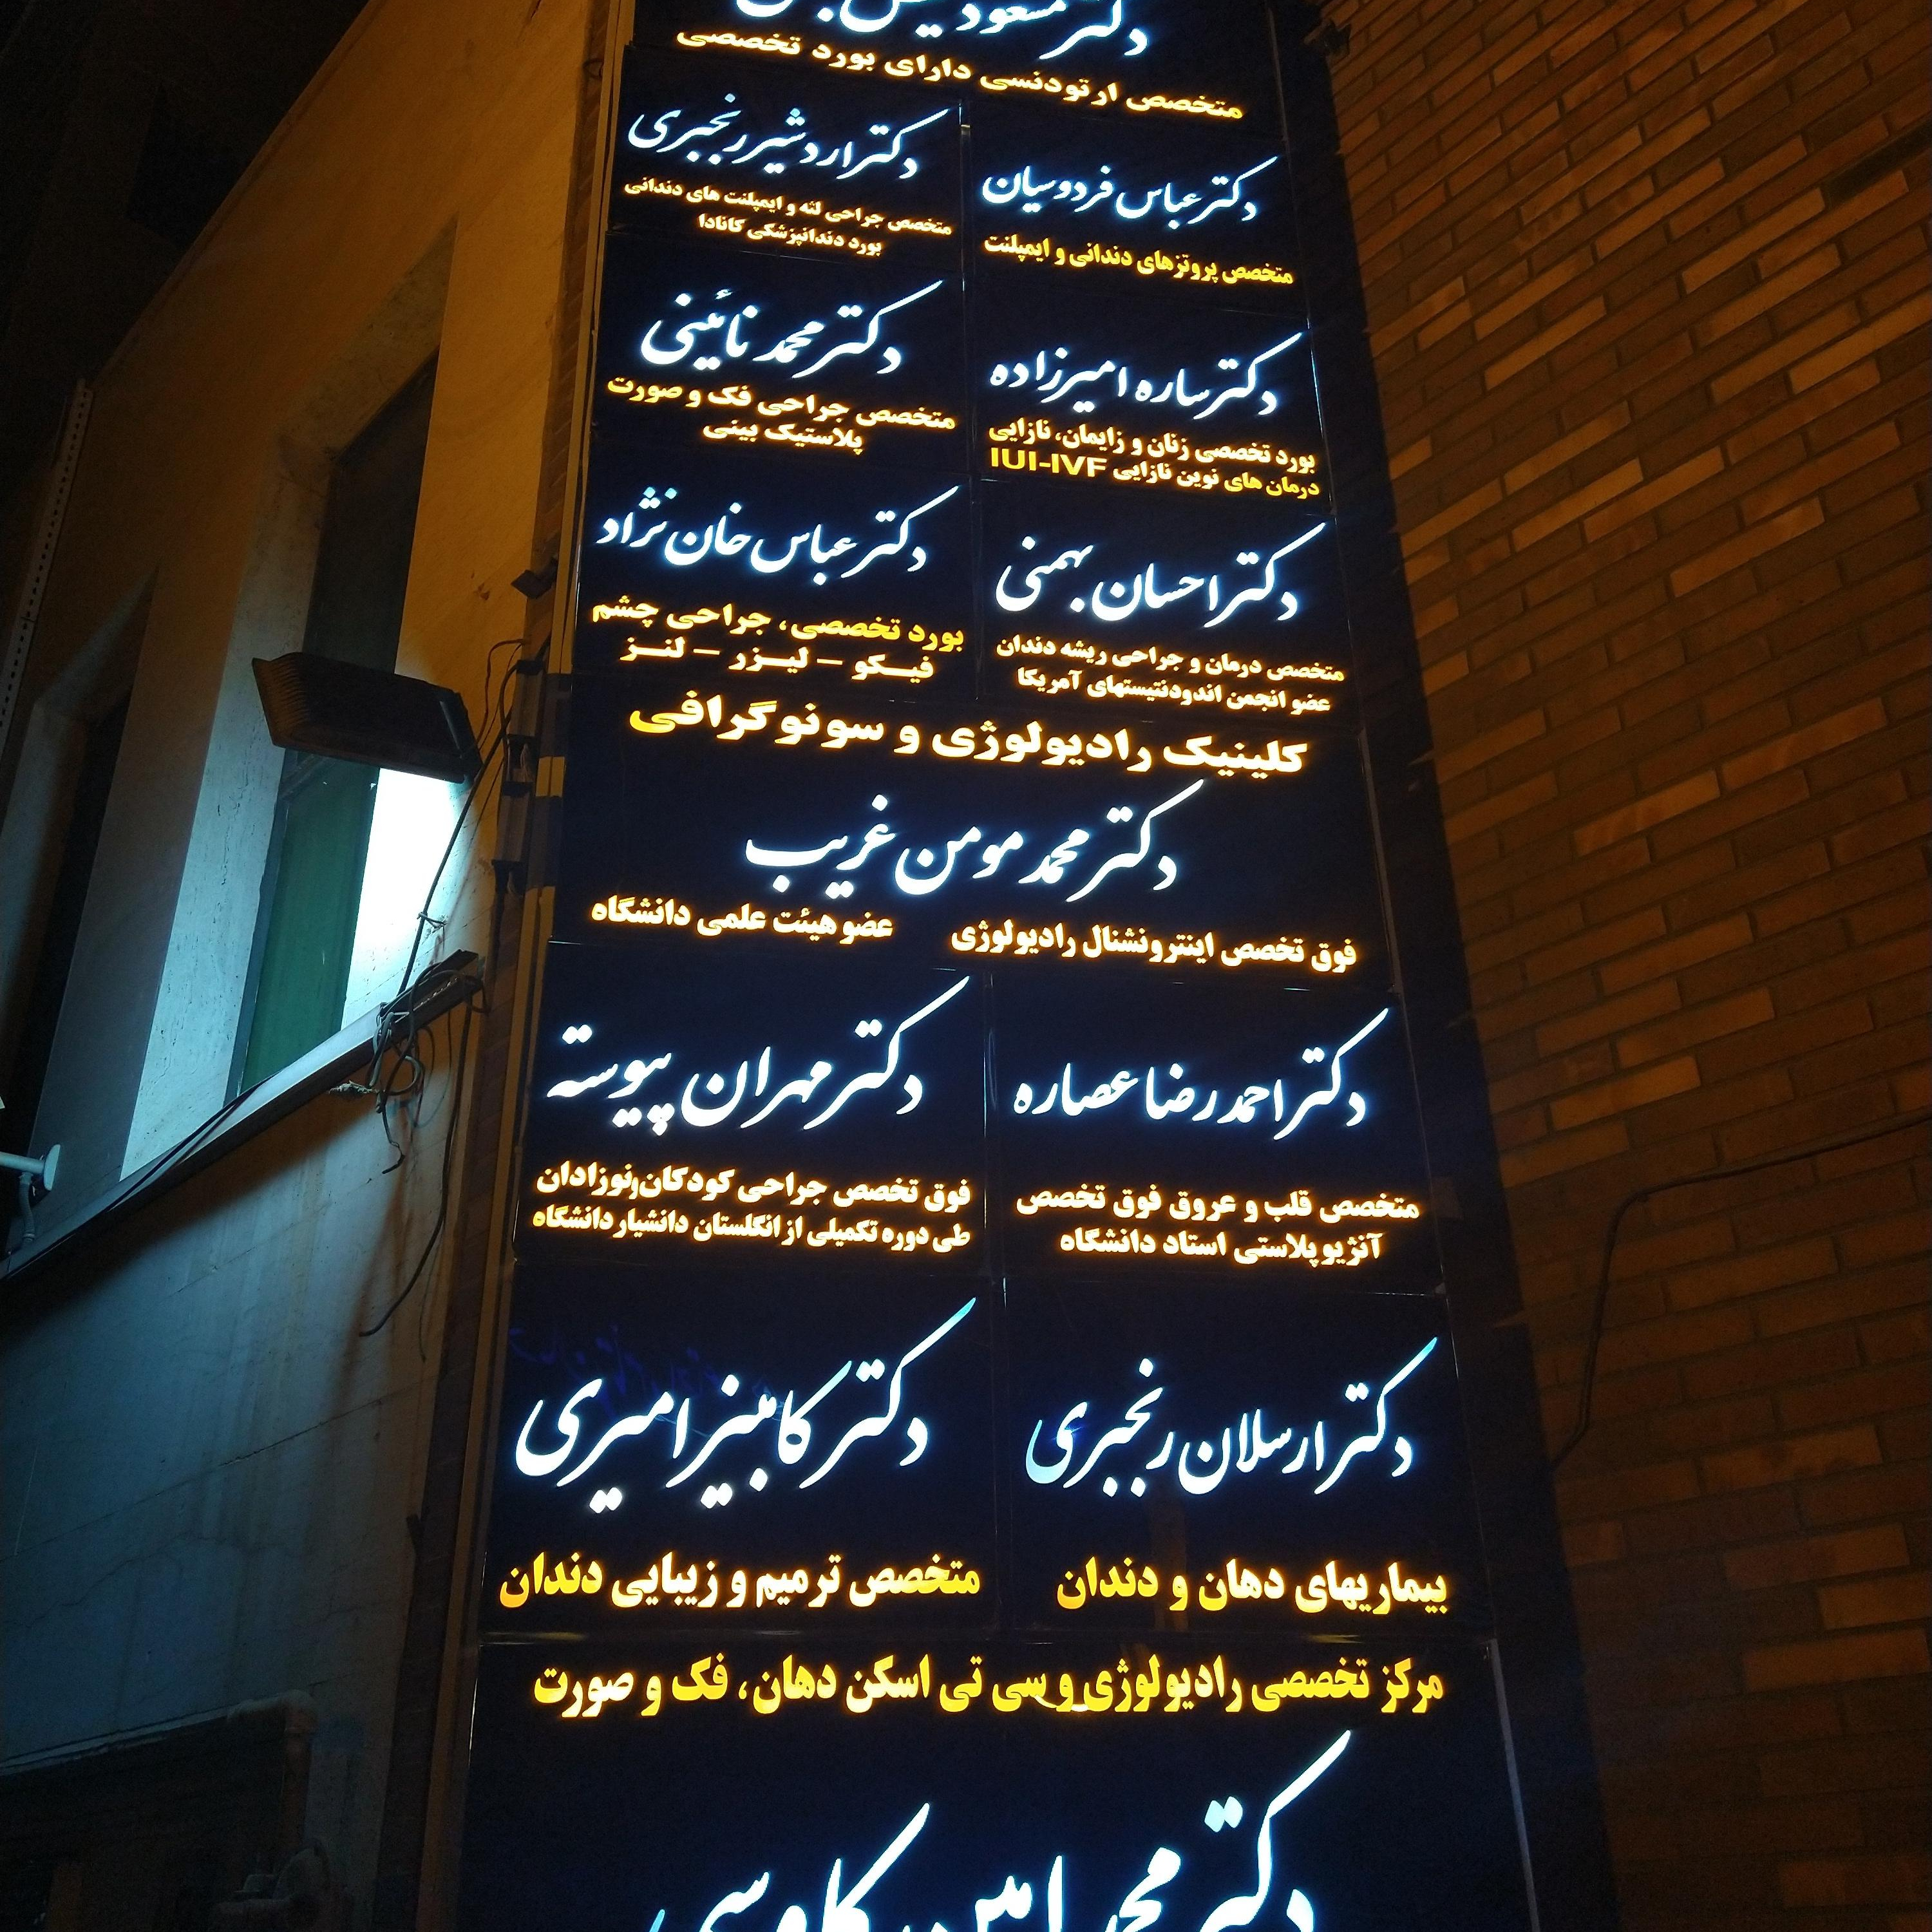 دکتر مسعود
متخصص ارتودنسی دارای بورد تخصصی
دکتر عباس فردوسیان
متخصص پروتزهای دندانی و ایمپلنت
دکتر اردشیر رنجبری
متخصص جراحی لثه و ایمپلنت های دندانی
بورد دندانپزشکی کانادا
دکتر ساره امیرزاده
بورد تخصصی زنان و زایمان، نازایی
درمان های نوین نازایی IUI-IVF
دکتر محمد نائینی
متخصص جراحی فک و صورت
پلاستیک بینی
دکتر احسان بهمنی
متخصص درمان و جراحی ریشه دندان
عضو انجمن اندودنتیستهای آمریکا
دکتر عباس خان نژاد
بورد تخصصی، جراحی چشم
فیکو – لیزر – لنز
کلینیک رادیولوژی و سونوگرافی
دکتر محمد مومن غریب
فوق تخصص اینترونشنال رادیولوژی عضو هیئت علمی دانشگاه
دکتر احمدرضا عصاره
متخصص قلب و عروق فوق تخصص
آنژیوپلاستی استاد دانشگاه
دکتر مهران پیوسته
فوق تخصص جراحی کودکان و نوزادان
طی دوره تکمیلی از انگلستان دانشیار دانشگاه
دکتر ارسلان رنجبری
بیماریهای دهان و دندان
دکتر کامبیز امیری
متخصص ترمیم و زیبایی دندان
مرکز تخصصی رادیولوژی و سی تی اسکن دهان، فک و صورت
دکتر محمد امین کاوسی